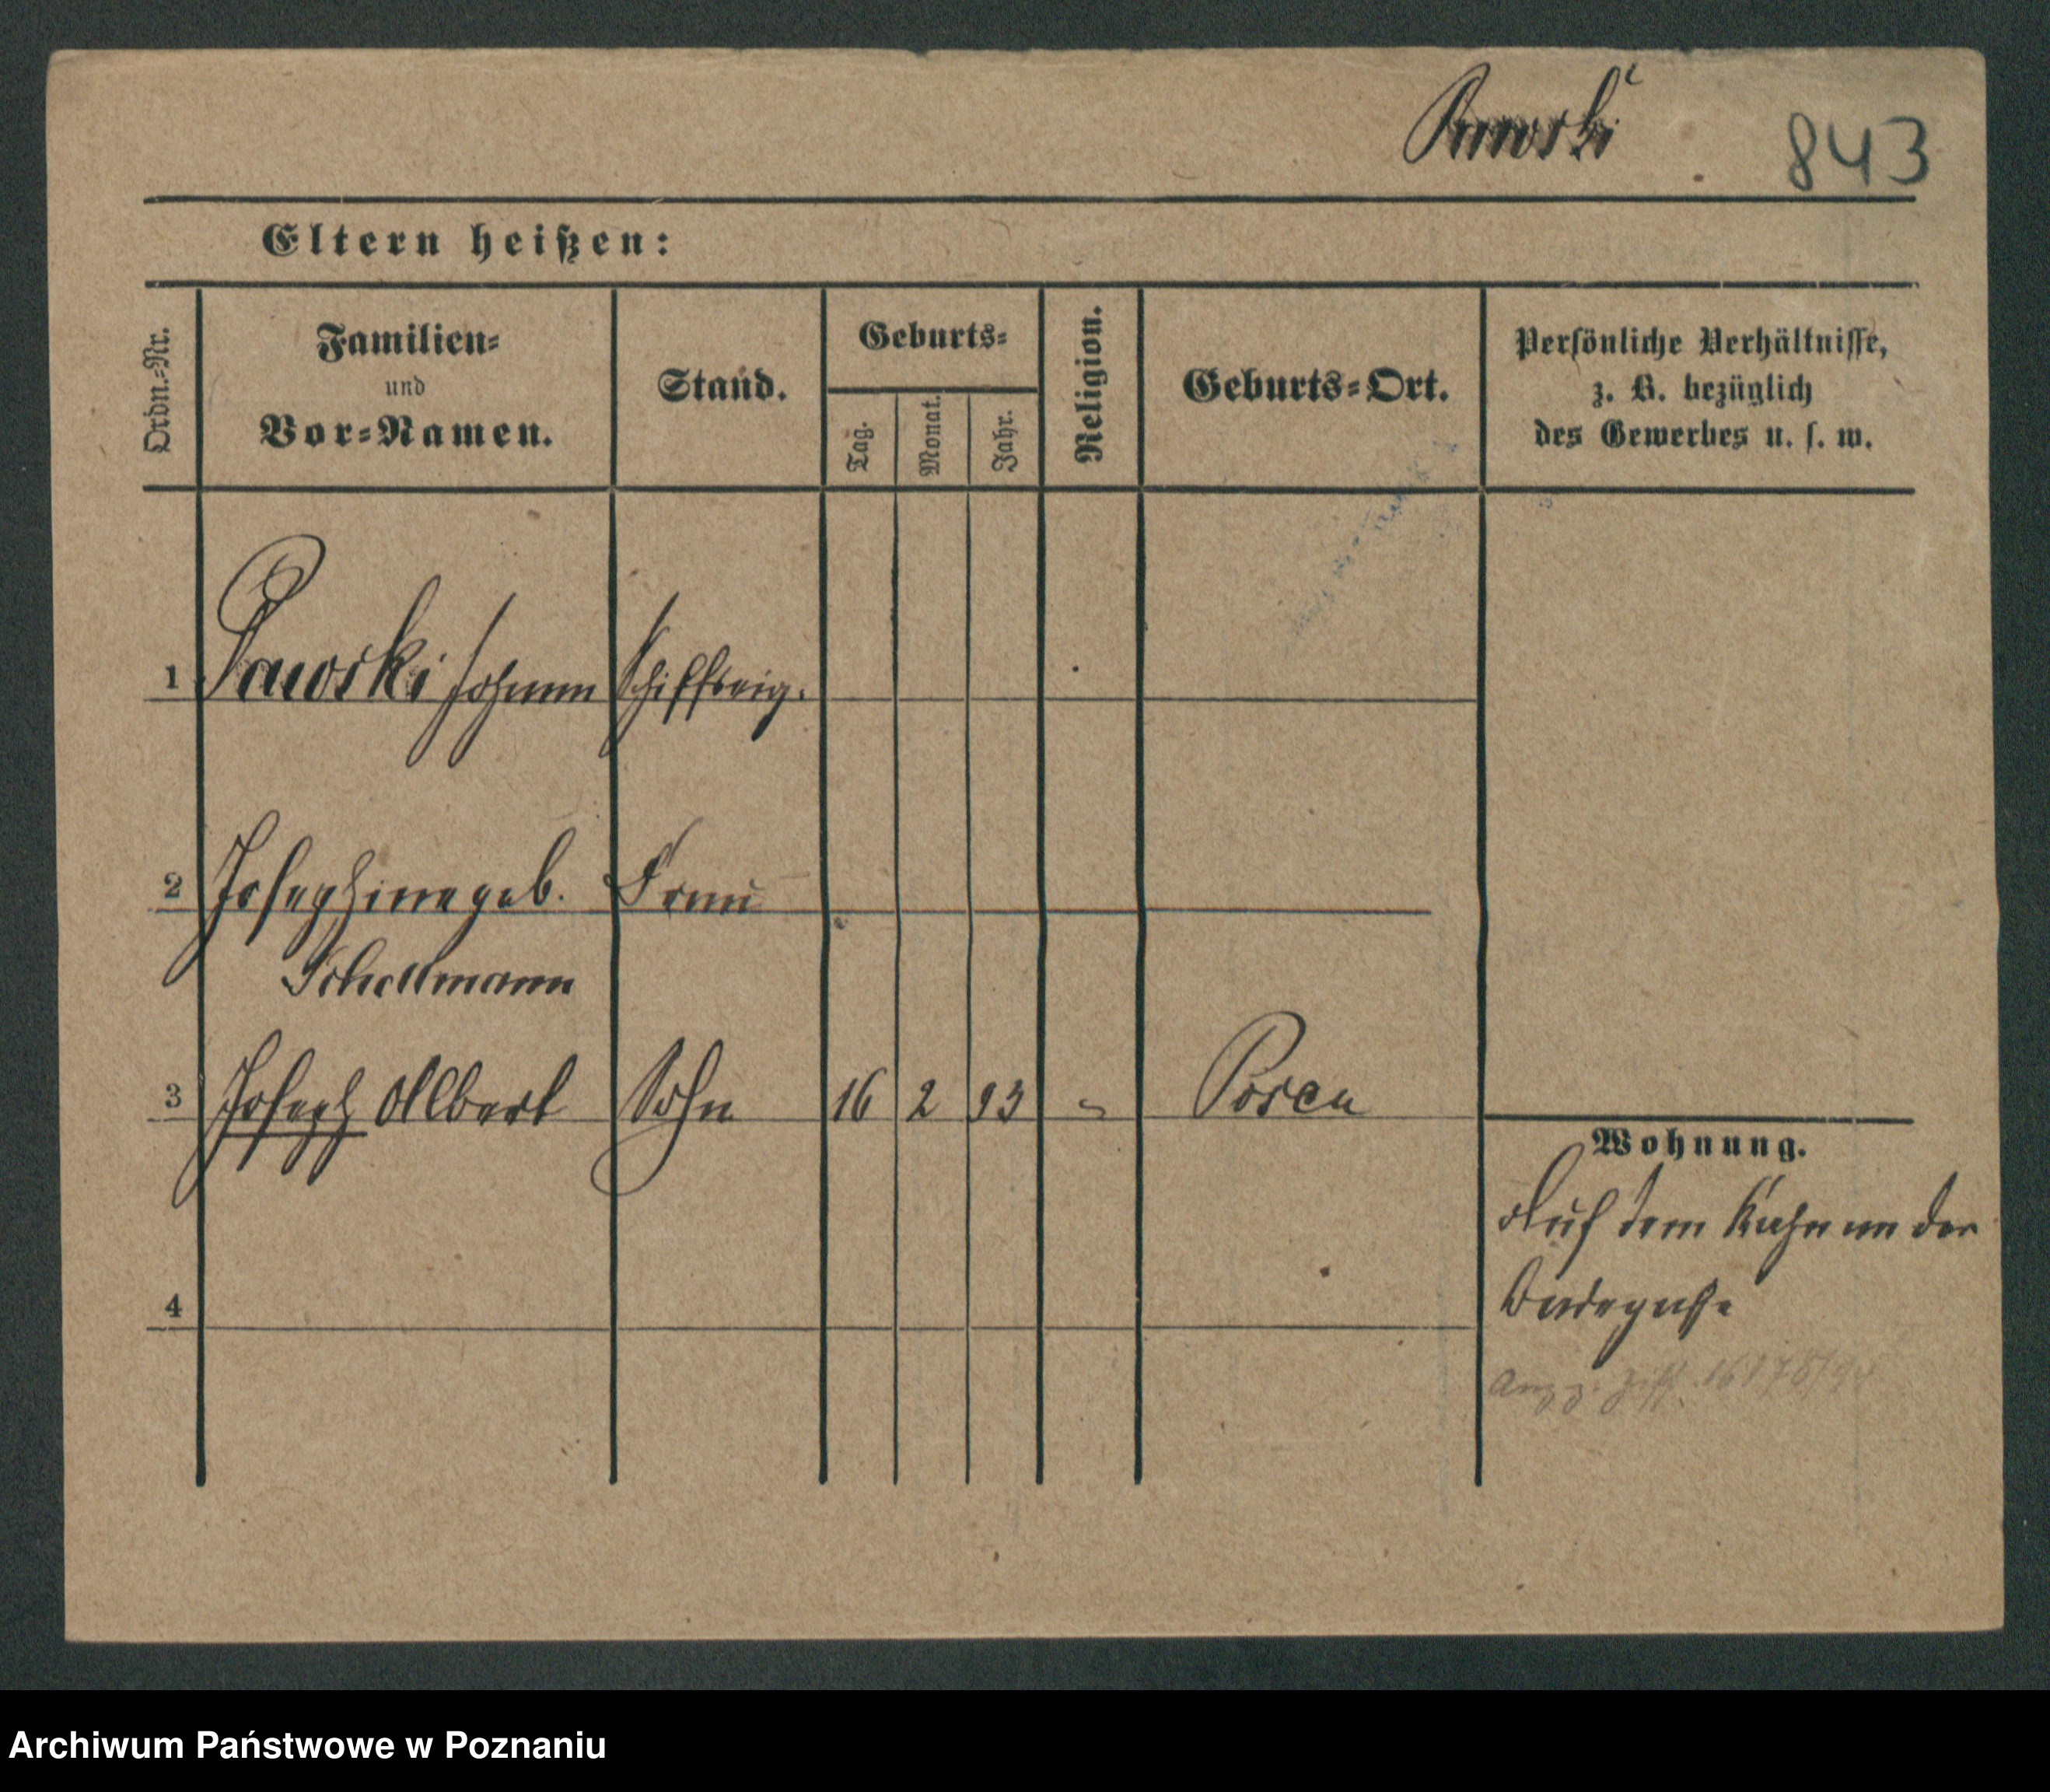 Pawski 843
Eltern heißen:
Ordn.-Nr.
Familien-
und
Vor-Namen.
Stand.
Geburts-
Tag.
Monat.
Jahr.
Religion.
Geburts-Ort.
Persönliche Verhältnisse,
z. B. bezüglich
des Gewerbes u. s. w.
1 Pawski Johann Schiffseig.
2 Josephine geb. Frau
3 Joseph Albert Sohn 16 2 93 Posen
Wohnung.
Auf dem Kahn an der
4
Archiwum Państwowe w Poznaniu